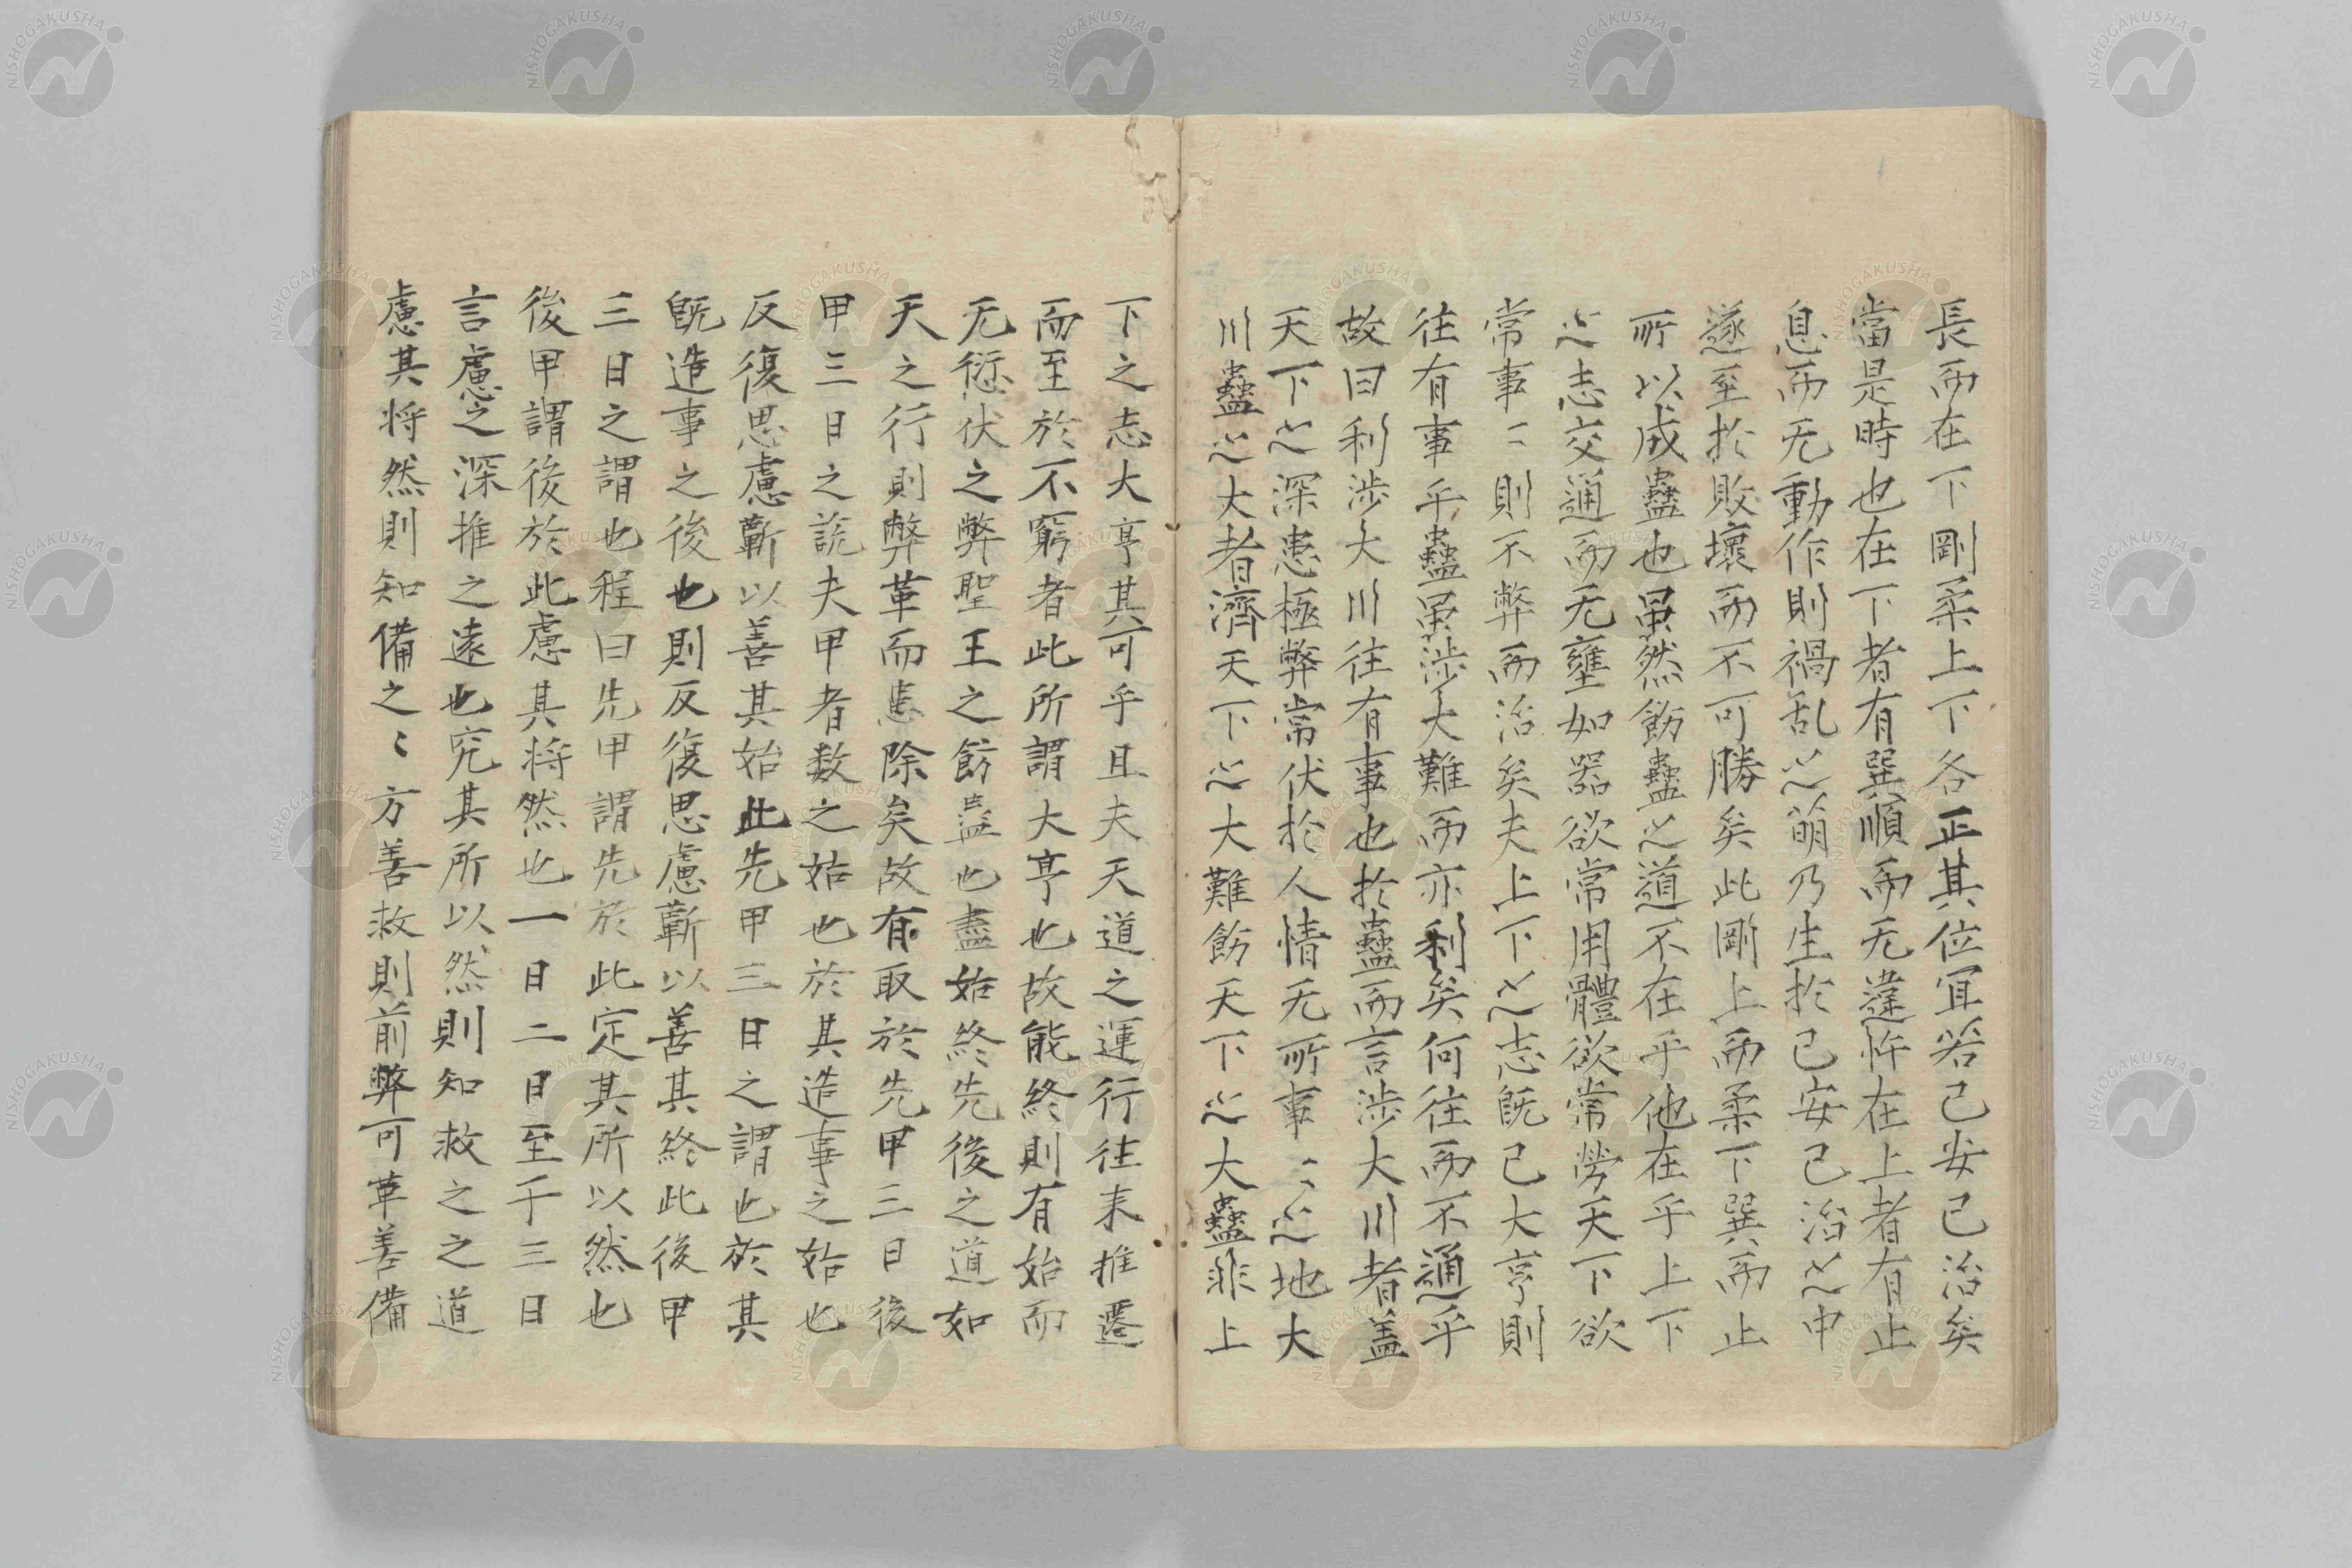 長而在下剛柔上下各正其位冝若已安已治矣
當是時也在下者有巽順而无違忤在上者有止
息而无動作則禍乱之萌乃生於已安已治之中
遂至於敗壞而不可勝矣此剛上而柔下巽而止
所以成蠱也虽然飭蠱之道不在乎他在乎上下
之志交通而无壅如器欲常用體欲常勞天下欲
常事〻則不弊而治矣夫上下之志既已大亨則
往有事乎蠱虽涉大難而亦利矣何往而不通乎
故曰利涉大川往有事也於蠱而言涉大川者盖
天下之深患極弊常伏於人情无所事〻之地大
川蠱之大者濟天下之大難飭天下之大蠱非上
下之志大亨其可乎且夫天道之運行往来推遷
而至於不窮者此所謂大亨也故能終則有始而
无愆伏之弊聖王之飭蠱也盡始終先後之道如
天之行則弊革而患除矣故有取於先甲三日後
甲三日之説夫甲者数之始也於其造事之始也
反復思慮蘄以善其始此先甲三日之謂也於其
既造事之後也則反復思慮蘄以善其終此後甲
三日之謂也程曰先甲謂先於此定其所以然也
後甲謂後於此慮其将然也一日二日至于三日
言慮之深推之遠也究其所以然則知救之之道
慮其将然則知備之〻方善救則前弊可革善備
NISHOGAKUSHA